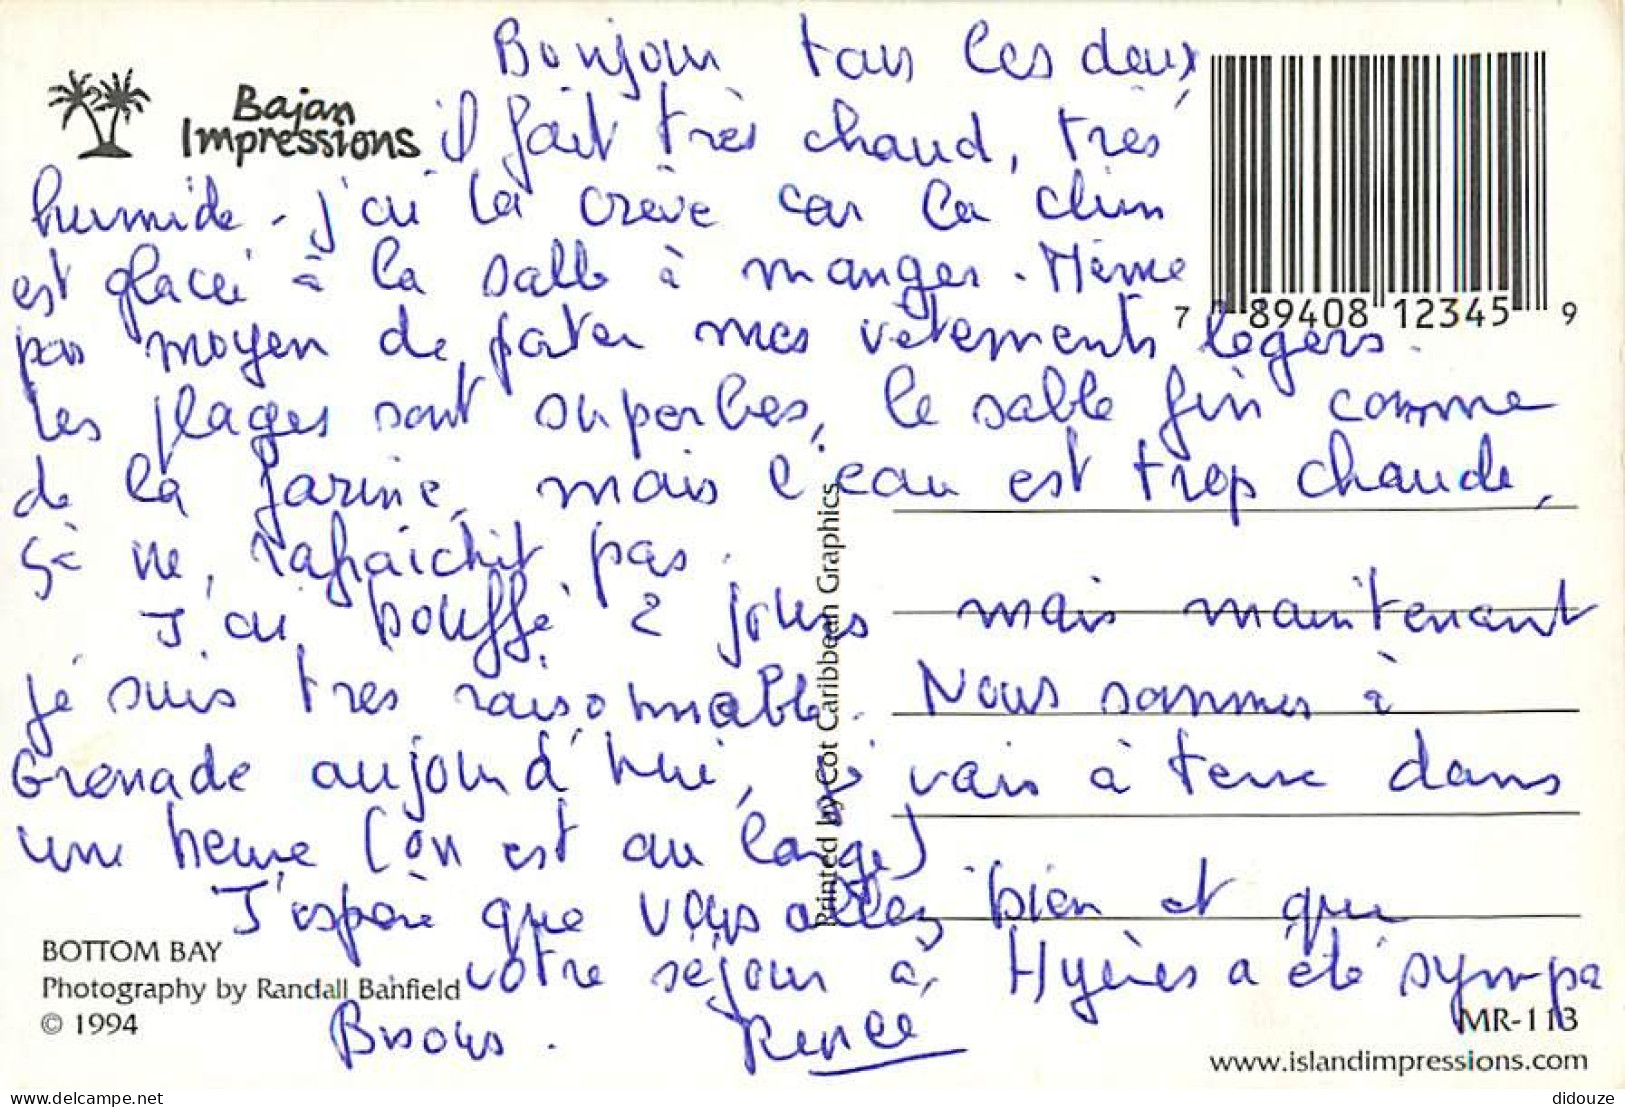 Bonjour tous les deux,
Bajan
Impressions
il fait très chaud, très
humide - j'ai la crève car la clim
est glacée à la salle à manger. Même
7 89408 12345 9
pas moyen de porter mes vêtements légers.
Les plages sont superbes, le sable fin comme
de la farine, mais l'eau est trop chaude,
ça ne rafraichit pas.
J'ai bouffé 2 jours mais maintenant
je suis très raisonnable. Nous sommes à
Grenade aujourd'hui, je vais à terre dans
une heure (on est au large)
J'espère que vous allez bien et que
votre séjour à Hyères a été sympa
Bisous. Renée
Printed by Cot Caribbean Graphics
BOTTOM BAY
Photography by Randall Banfield
© 1994
MR-113
www.islandimpressions.com
delcampe.net
didouze